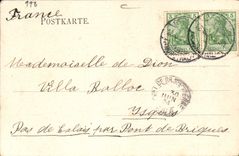 198
France
POSTKARTE.
Mademoiselle de Dion
Villa Balloc
30
JUIN
Pas de Calais par Pont de Briques